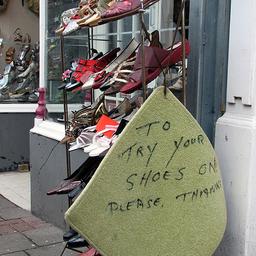 TO
TRY YOUR
SHOES ON
PLEASE, THANKS